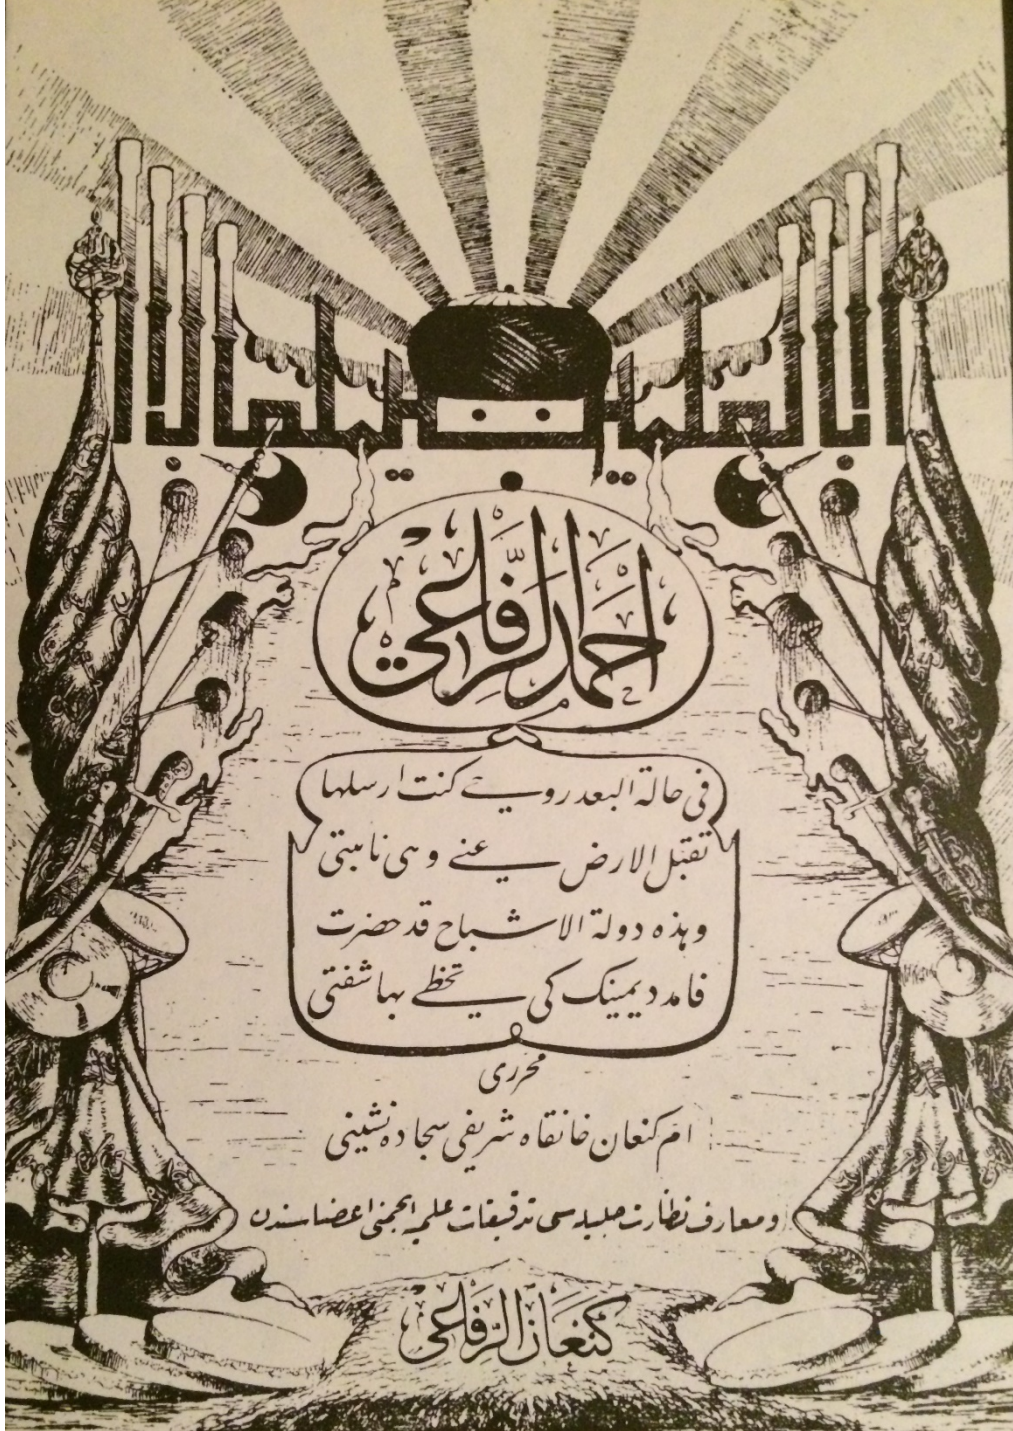 احمد الرّفاعي
في حالة البعد روحے كنت ارسلها
تقبل الارض عنے وهی نائبتي
وهذه دولة الاشباح قد حضرت
فامدد يمينك كی تحظے بها شفتي
محرری
ام کنعان خانقاه شریفی سجاده نشینی
و معارف نظارت جلیله سی تدقیقات علمیه انجمنی اعضاسندن
كنعان الرّفاعي